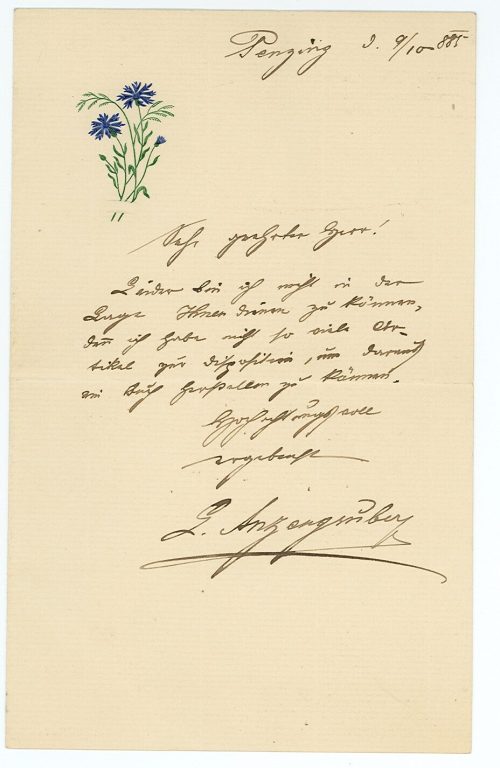 Penzing d. 9/10 885
Sehr geehrter Herr!
Leider bin ich nicht in der
Lage Ihnen dienen zu können,
denn ich habe nicht so viele Ar-
tikel zur Disposition, um daraus
ein Buch herstellen zu können.
Hochachtungsvoll
ergebenst
L. Anzengruber